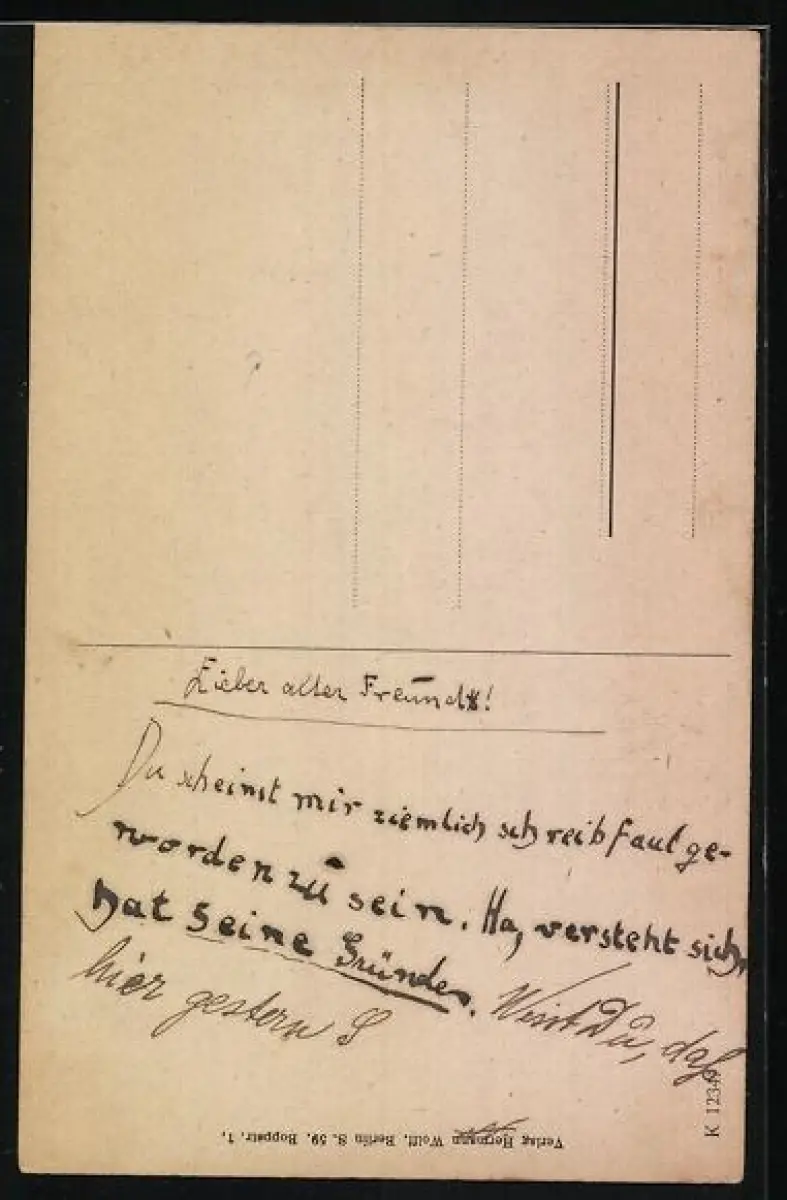 Lieber alter Freund!
Du scheinst mir ziemlich schreibfaul ge-
worden zu sein. Ha, versteht sich,
hat seine Gründe. Weist Du, daß
hier gestern S
Verlag Hermann Wolff, Berlin S. 59, Boppstr. 1,
K 1234